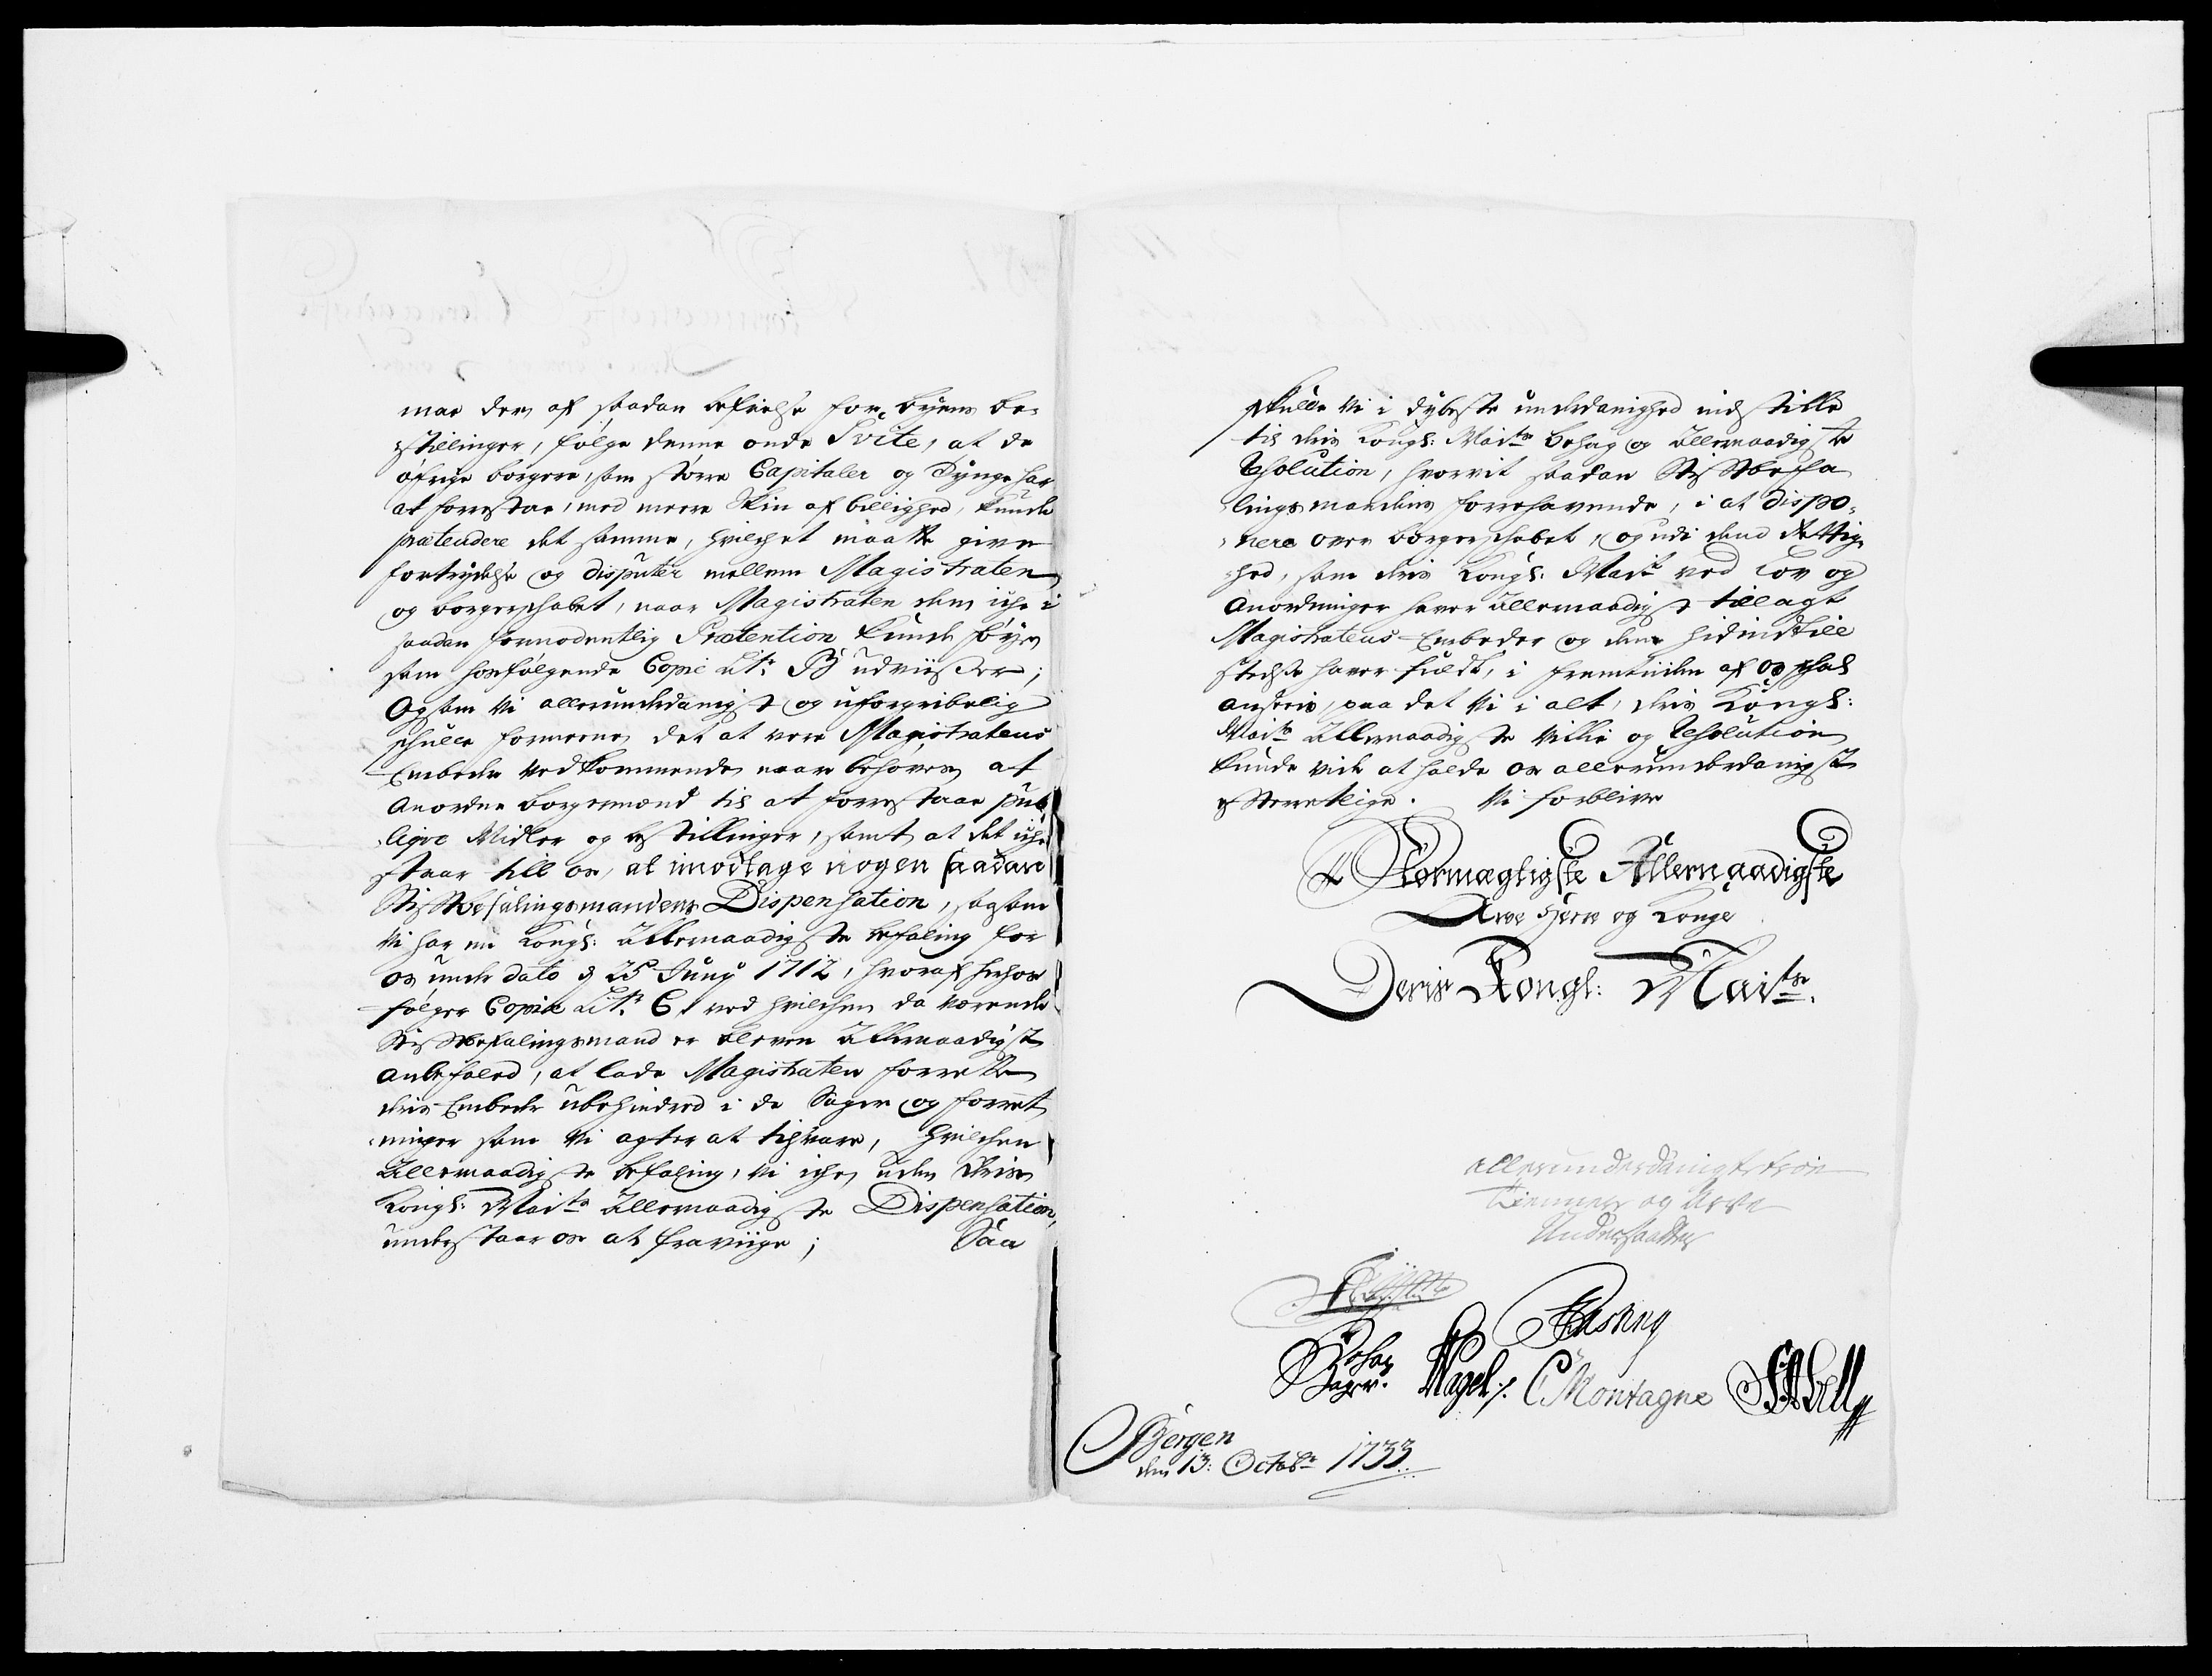 maa den af saadan befrielse for byens be-
stillinger, følge denne onde Svite, at de
øfrige borgere, som større Capitaler og Tynge har
at forrestaa, med meere Skin af billighed, kunde
prætendere det samme, hvilchet maatte give
fortrydelse og disputer mellem Magistraten
og borgerschabet, naar Magistraten dem iche i
saadan formodentlig Prætention kunde føye
som hosfølgende Copie Litr. B udviiser;
Og som Vi allerunderdanigst og uforgribelig
schulle formeene, det at være Magistratens
Embede Vedkommende, naar behøves, at
Anordne borgermænd til at forrestaae pub-
liqve Midler og bestillinger, samt at det iche
staar till os, at imodtage nogen saadan
Stiftbefalingsmandens Dispensation, saasom
Vi har en Kongl: Allernaadigste befaling for
os under dato d 25 Junij 1712, hvoraf herhos
følger Copia Litr. C, ved hvilchen da værende
Stiftbefalingsmand er bleven Allernaadigst
anbefaled, at lade Magistraten forrette
deris Embede ubehindred i de Sager og forret-
ninger som Vi agter at tilsvare, hvilchen
Allernaadigste befaling, Vi iche, uden Deris
Kongl: Maits Allernaadigste Dispensation,
understaar os at fraviige; Saa
skulle Vi i dybeste underdanighed indstille
til deris Kongl: Maits behag og Allernaadigste
Resolution, hvorvit saadan Stiftbefa-
lingsmandens forrehavende, i at dispo-
nere over borgerschabet, og udi dend Rettig-
hed, som deris Kongl: Mait ved Lov og
Anordninger haver Allernaadigst tillagt
Magistratens Embeder og denne hidindtill
stedse haver fuldt, i fremtiiden af os schal
ansees, paa det Vi i alt, deris Kongl:
Maits Allernaadigste Villie og Resolution
kunde vide at holde os allerunderdanigst
efterrettlige. Vi forblive
Stormægtigste Allernaadigste
Arve Herre og Konge
Deris Kongl: Maits.
allerunderdanigst troe
tienner og Arve
Undersaatter
Fasting
Johan
Nagel.
C Montagne
Bergen
den 13: Octobr 1733.